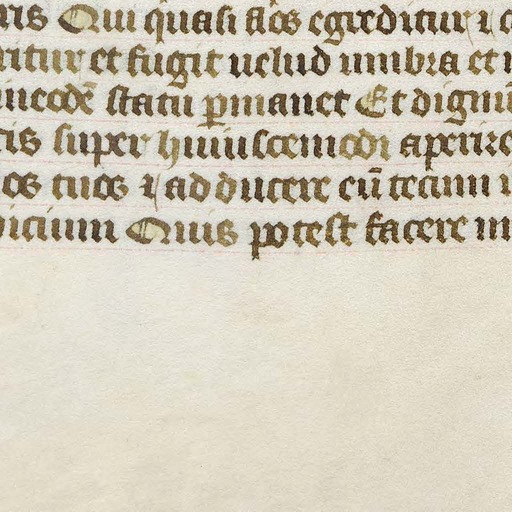 Qui quasi flos egreditur ⁊ c
ritur et fugit uelud umbra et n
in eodē statu ꝑmanet Et dignū
tis super huiuscemodi aperire
os tuos ⁊ adducere cū tecum i
dicium Quis potest facere m